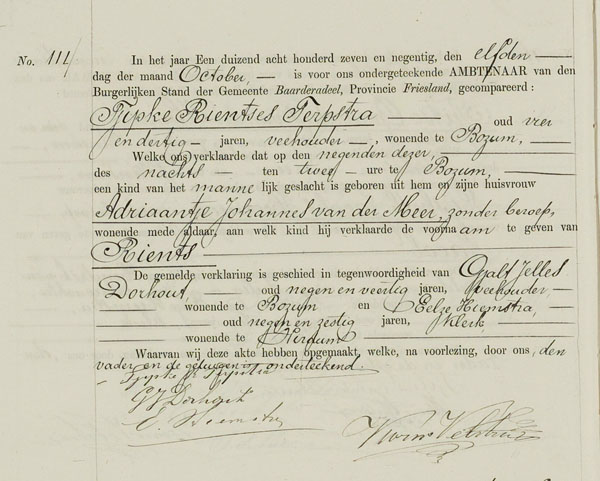 No. 111
In het jaar Een duizend acht honderd zeven en negentig, den elfden
dag der maand October, is voor ons ondergeteekende AMBTENAAR van den
Burgerlijken Stand der Gemeente Baarderadeel, Provincie Friesland, gecompareerd:
Tjipke Rientses Terpstra oud vier
en dertig jaren, veehouder, wonende te Bozum,
Welke ons verklaarde dat op den negenden dezer,
des nachts ten twee ure te Bozum,
een kind van het mannelijk geslacht is geboren uit hem en zijne huisvrouw
Adriaantje Johannes van der Meer, zonder beroep,
wonende mede aldaar, aan welk kind hij verklaarde de voornaam te geven van
Rients
De gemelde verklaring is geschied in tegenwoordigheid van Galf Jelles
Dorhout, oud negen en veertig jaren, veehouder,
wonende te Bozum en Eelze Hiemstra,
oud negen en zestig jaren, klerk
wonende te
Waarvan wij deze akte hebben opgemaakt, welke, na voorlezing, door ons, den
vader en de getuigen is onderteekend.
G J Dorhout
E. Hiemstra